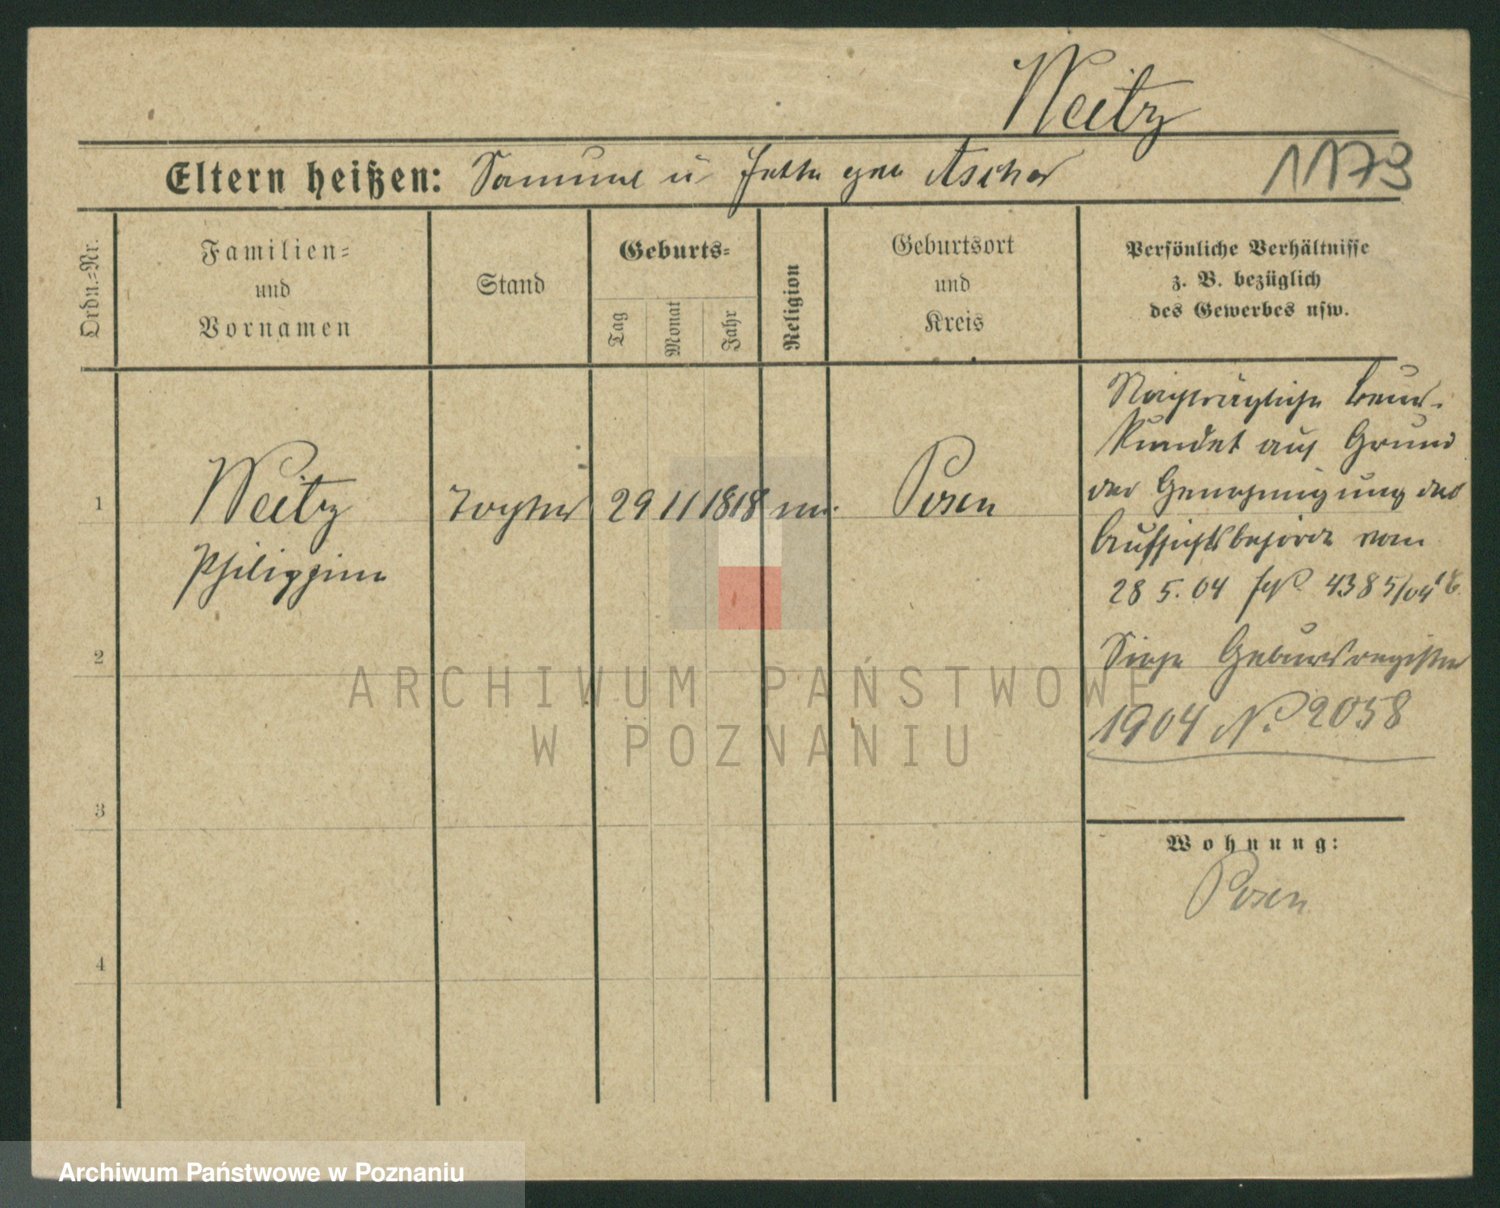 Weitz
Eltern heißen: Samuel u Jette geb Ascher
1173
Ordn.-Nr.
Familien-
und
Vornamen
Stand
Geburts-
Tag
Monat
Jahr
Religion
Geburtsort
und
Kreis
Persönliche Verhältnisse
z. B. bezüglich
des Gewerbes usw.
1
Weitz
Philippine
Tochter
29 11 1818
Posen
Nachträgliche beur-
kundet auf Grund
der Genehmigung der
Aufsichtsbehörde vom
28 5. 04 4385/04
Siehe Geburtsregister
1904 N. 2058
2
3
4
Wohnung:
Posen
ARCHIWUM PAŃSTWOWE
W POZNANIU
Archiwum Państwowe w Poznaniu